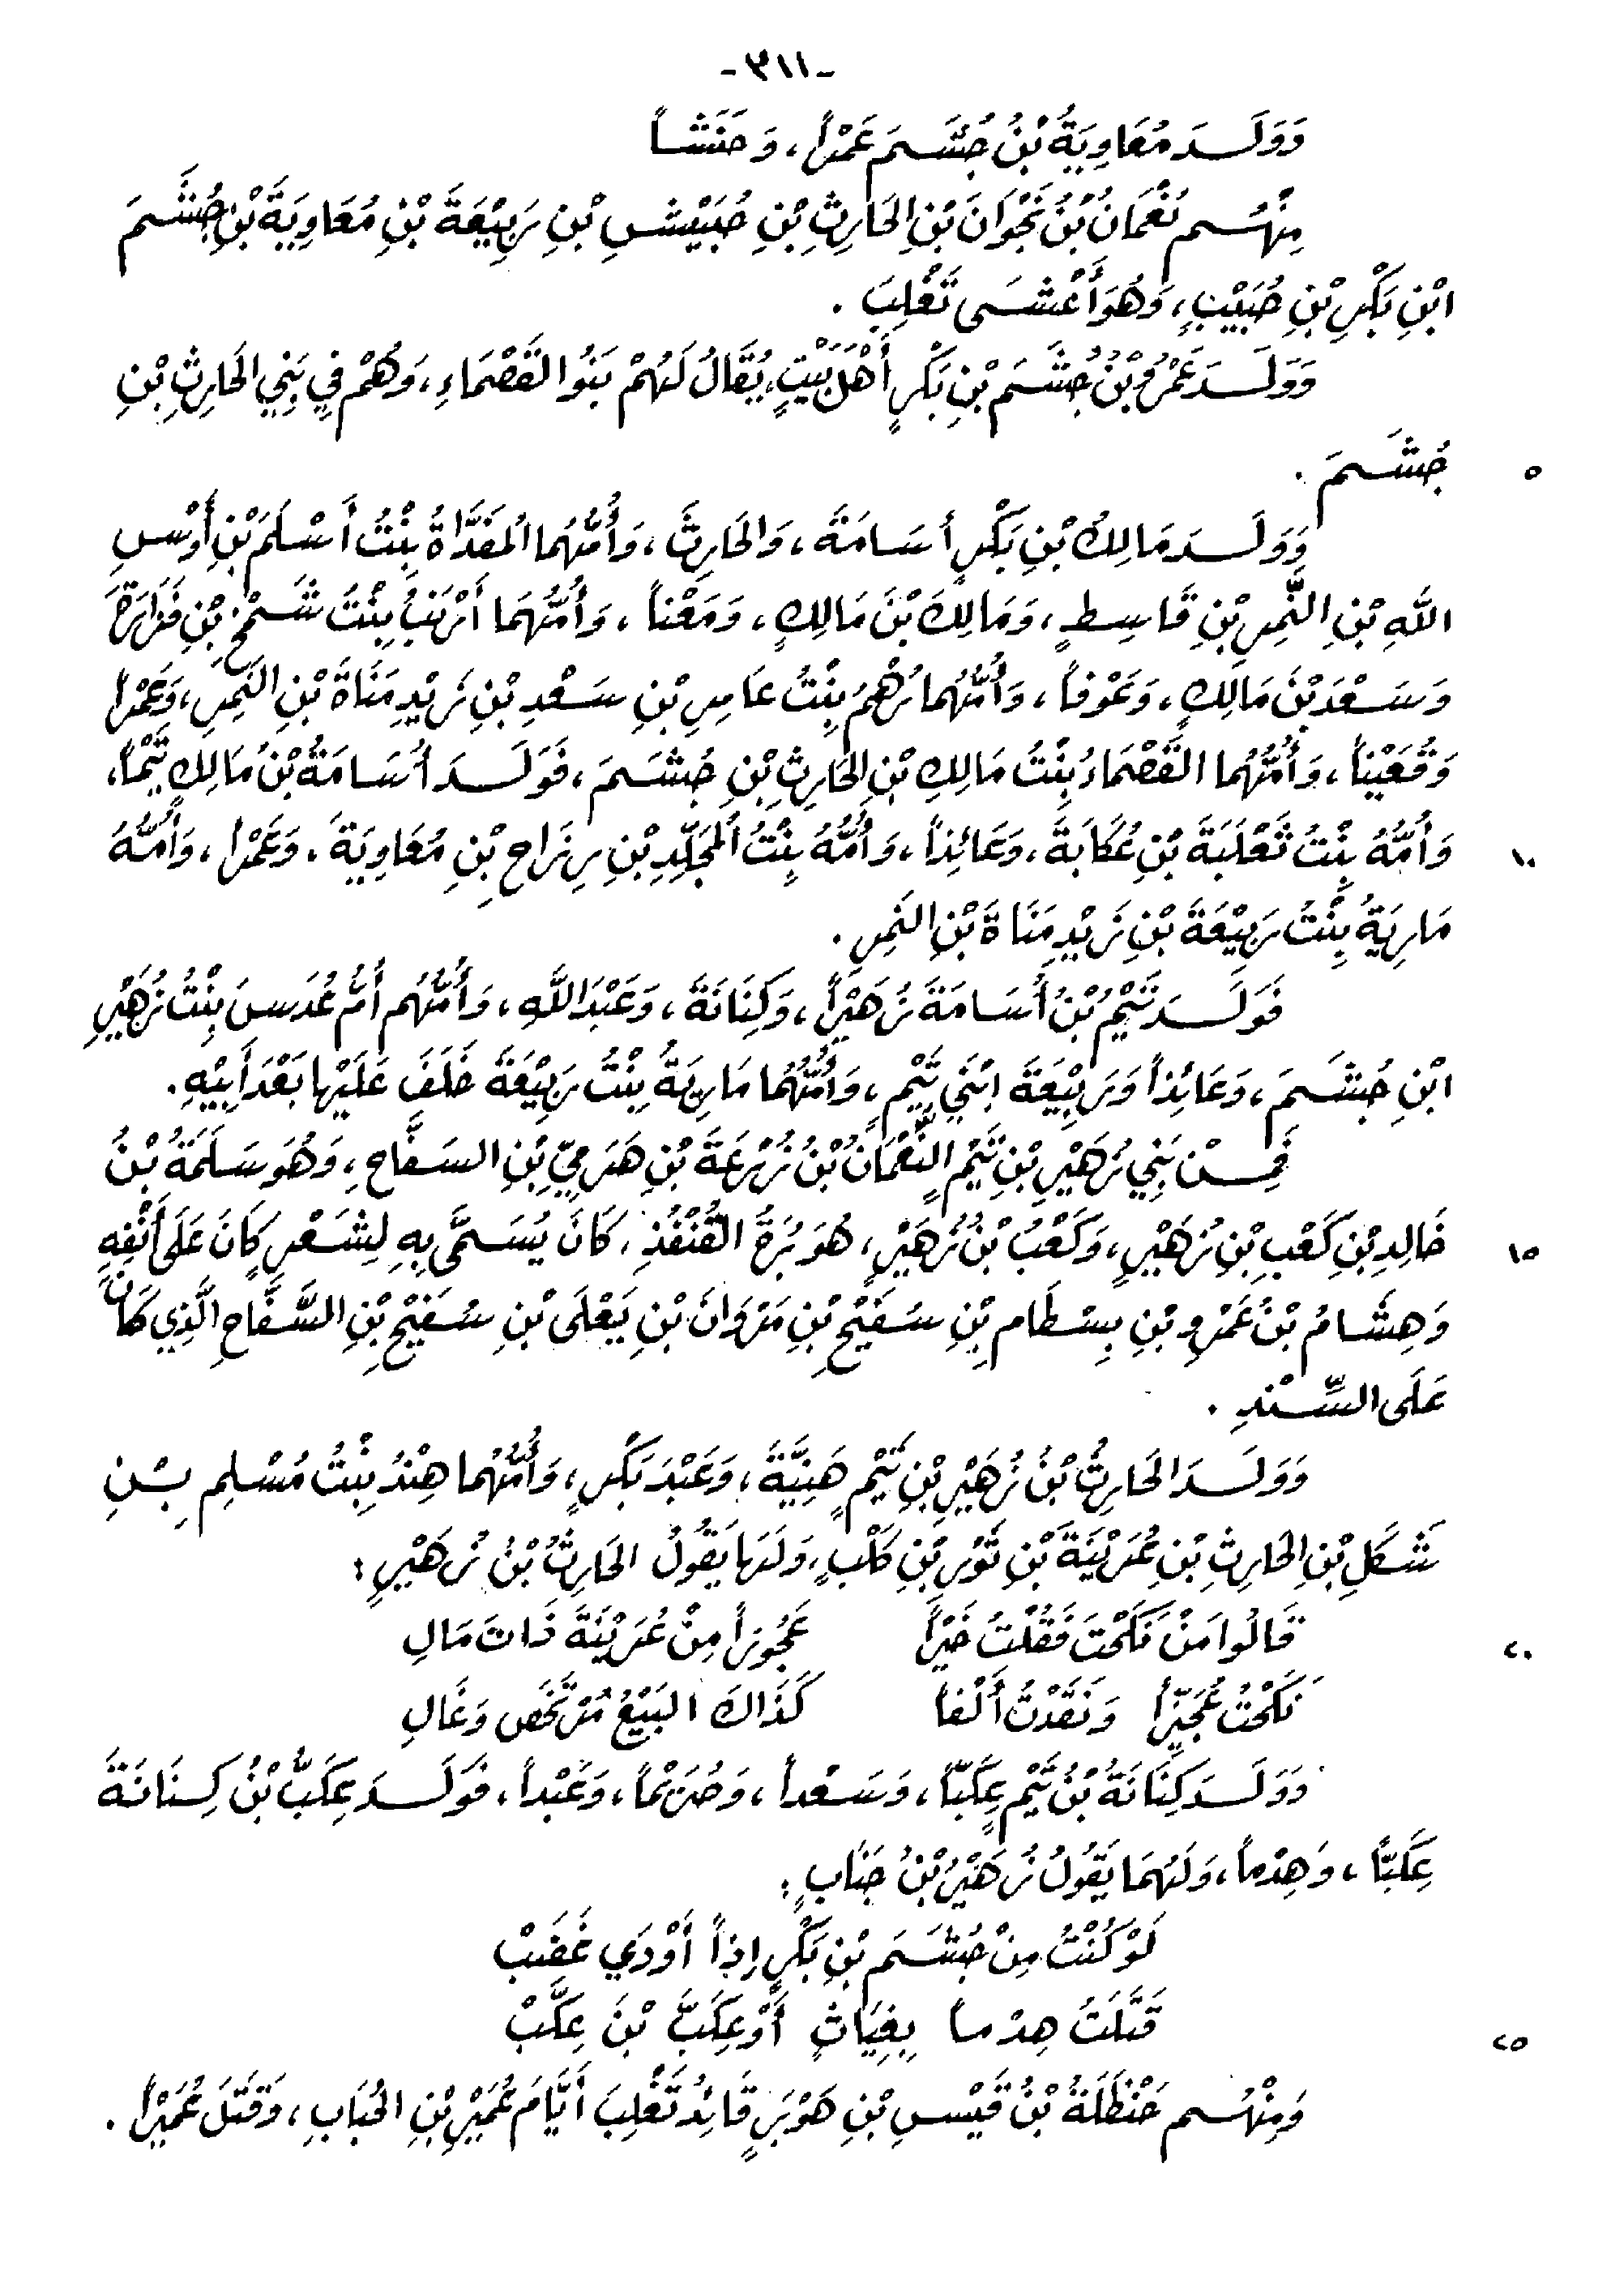 -٣١١-
وَوَلَـدَ مُعَاوِيَةُ بْنُ جُشَـمَ عَمْراً، وَحَنَشاً
مِنْهُـم نُعْمَانُ بْنُ نَجْوَانَ بْنِ الحَارِثِ بْنِ حُبَيْشِ بْنِ رَبِيْعَةَ بْنِ مُعَاوِيَةَ بْنِ جُشَـمَ
ابْنِ بَكْرِ بْنِ حُبَيْبٍ، وَهُوَ أَعْشَـى تَغْلِبَ .
وَوَلَـدَ عَمْرُو بْنُ جُشَـمَ بْنِ بَكْرٍ أَهْلَ بَيْتٍ، يُقَالُ لَهُمْ بَنُو القَصْمَاءِ، وَهُمْ فِي بَنِي الحَارِثِ بْنِ
٥ جُشَـمَ .
وَوَلَـدَ مَالِكُ بْنِ بَكْرٍ أُسَامَةَ، وَالحَارِثَ، وَأُمُّهُما المُفَدَّاةُ بِنْتُ أَسْلَمَ بْنِ أَوْسِ
اللهِ بْنِ النَّمِرِ بْنِ قَاسِطٍ، وَمَالِكَ بْنَ مَالِكٍ، وَمَعْناً، وَأُمُّهُمَا أَرْنَبُ بِنْتُ شَمْخِ بْنِ فَزَارَةَ
وَسَـعْدَ بْنَ مَالِكٍ، وَعَوْفاً، وَأُمُّهُما رُهْمُ بِنْتُ عَامِرِ بْنِ سَعْدِ بْنِ زَيْدِ مَنَاةَ بْنِ النَّمِرِ، وَعَمْراً
وَقُعَيْناً، وَأُمُّهُما القَصْمَاءُ بِنْتُ مَالِكِ بْنِ الحَارِثِ بْنِ جُشَـمَ، فَوَلَـدَ أُسَامَةُ بْنُ مَالِكٍ تَيْماً،
١٠ وَأُمُّهُ بِنْتُ ثَعْلَبَةَ بْنِ عُكَابَةَ، وَعَائِذاً، وَأُمُّهُ بِنْتُ المُجَلِّدِ بْنِ رِزَاحِ بْنِ مُعَاوِيَةَ، وَعَمْراً، وَأُمُّهُ
مَارِيَةُ بِنْتُ رَبِيْعَةَ بْنِ زَيْدِ مَنَاةَ بْنِ النَّمِرِ .
فَوَلَـدَ تَيْمُ بْنُ أُسَامَةَ زُهَيْراً، وَكِنَانَةَ، وَعَبْدَ اللَّهِ، وَأُمُّهُم أُمُّ عُدَسَ بِنْتُ زُهَيْرِ
ابْنِ جُشَـمَ، وَعَائِذاً وَرَبِيْعَةَ ابْنَي تَيْمٍ، وَأُمُّهُمَا مَارِيَةُ بِنْتُ رَبِيْعَةَ خَلَفَ عَلَيْها بَعْدَ أَبِيْهِ.
فَمِـنْ بَنِي زُهَيْرِ بْنِ تَيْمٍ النُّعْمَانُ بْنُ زُرْعَةَ بْنِ هَرَمِيِّ بْنِ السَفَّاحِ، وَهُوَ سَلَمَةُ بْنُ
١٥ خَالِدِ بْنِ كَعْبِ بْنِ زُهَيْرٍ، وَكَعْبُ بْنُ زُهَيْرٍ، هُوَ بُرَةُ القُنْفُذِ، كَانَ يُسَـمَّى بِهِ لِشَعْرٍ كَانَ عَلَى أَنْفِهِ
وَهِشَامُ بْنُ عَمْرِو بْنِ بِسْطَامِ بْنِ سُفَيْحِ بْنِ مَرْوَانَ بْنِ يَعْلَى بْنِ سُفَيْحِ بْنِ السَّفَّاحِ الَّذِي كَانَ
عَلَى السِّـنْدِ .
وَوَلَـدَ الحَارِثُ بْنُ زُهَيْرِ بْنِ تَيْمٍ هَنِيَّةَ، وَعَبْدَ بَكْرٍ، وَأُمُّهُما هِنْدُ بِنْتُ مُسْلِمِ بْـنِ
شَكَلِ بْنِ الحَارِثِ بْنِ عُرَيْنَةَ بْنِ ثَوْرِ بْنِ كَلْبٍ، وَلَهَا يَقُولُ الحَارِثُ بْنُ زُهَيْرٍ :
٢٠ قَالُوا مَنْ نَكَحْتَ فَقُلْتُ خَيْراً عَجُوزاً مِنْ عُرَيْنَةَ ذَاتَ مَالِ
نَكَحْتُ عُجَيِّزاً وَنَقَدْتُ أَلْفاً كَذَاكَ البَيْعُ مُرْتَخَصٌ وَغَالِ
وَوَلَـدَ كِنَانَةُ بْنُ تَيْمٍ عِكَبّاً، وَسَـعْداً، وَحُرَيْماً، وَعَبْداً، فَوَلَـدَ عِكَبُّ بْنُ كِنَانَـةَ
عِكَبّاً، وَهِدْماً، وَلَهُمَا يَقُولُ زُهَيْرُ بْنُ جَنَابٍ :
لَوْ كُنْتُ مِنْ جُشَـمَ بْنِ بَكْرٍ إِذاً أَوْ ذَي غَضَبْ
٢٥ قَتَلَتْ هِدْماً بِغِيَاثٍ أَوْ عِكَبَّ بْنَ عِكَبّْ
وَمِنْهُـم حَنْظَلَةُ بْنُ قَيْسِ بْنِ هَوْبَرٍ قَائِدُ تَغْلِبَ أَيَّامَ عُمَيْرِ بْنِ الحُبَابِ، وَقَتَلَ عُمَيْراً .